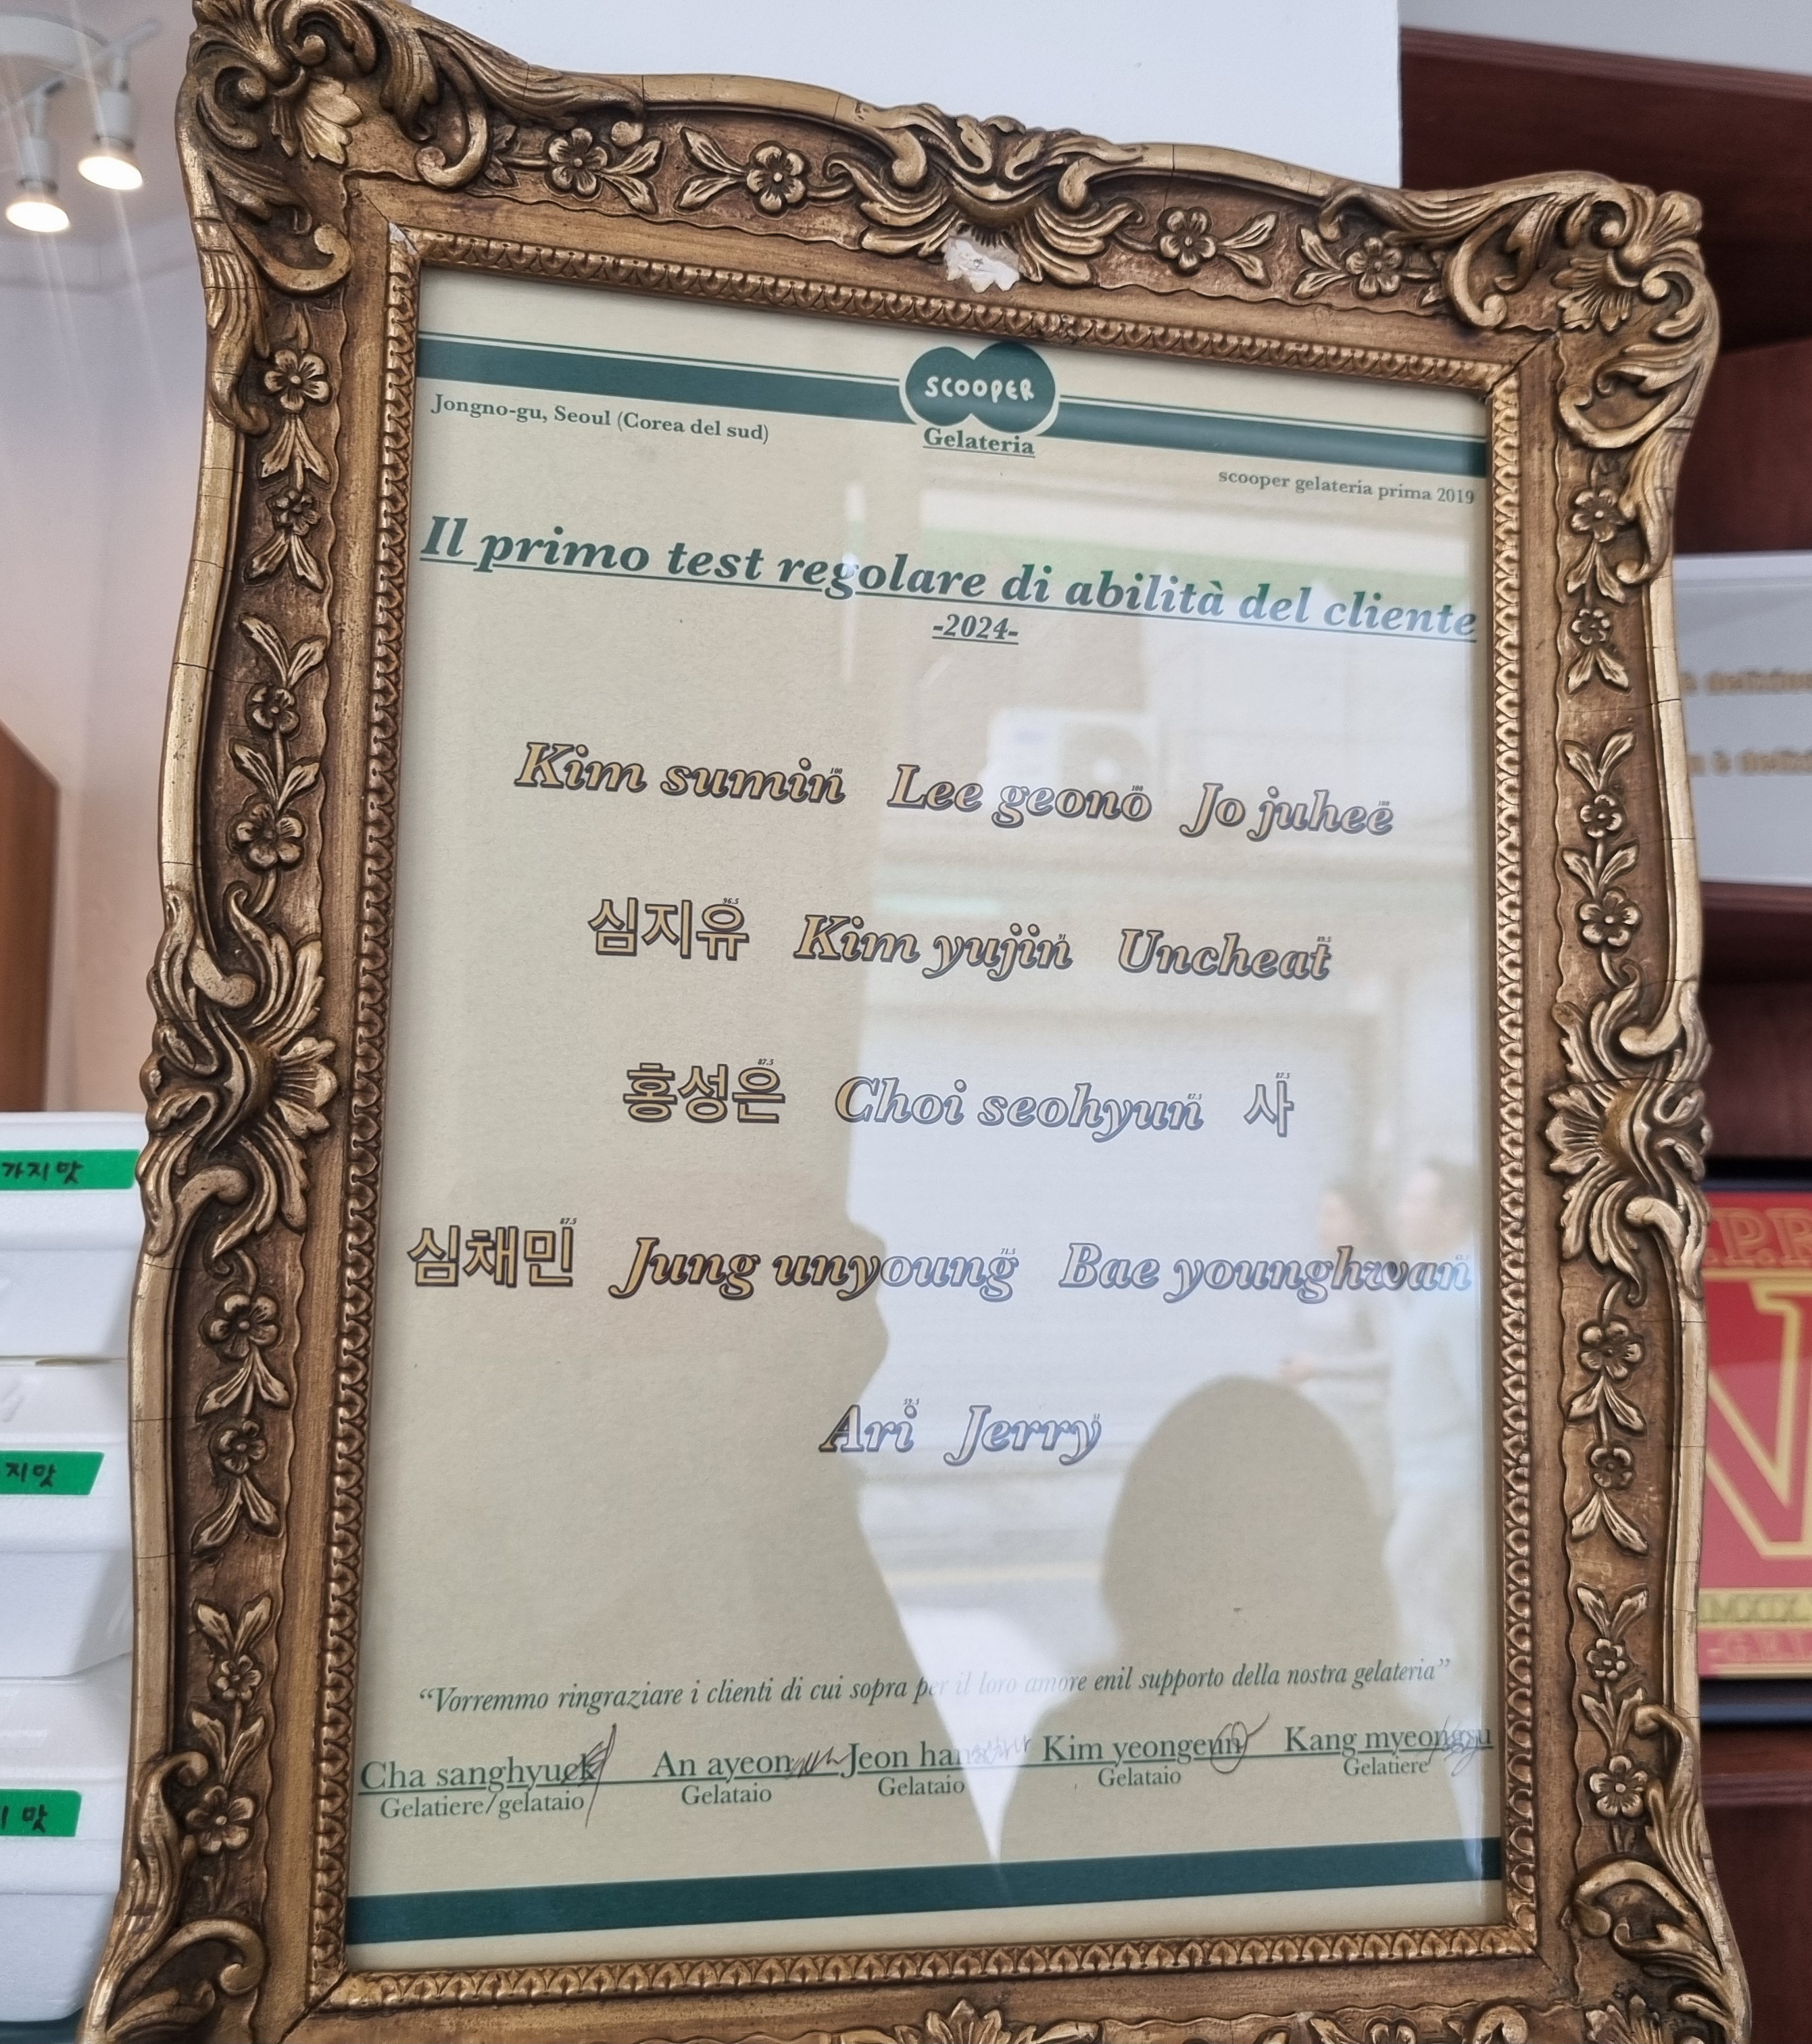 SCOOPER
Gelateria
Jongno-gu, Seoul (Corea del sud)
scooper gelateria prima 2019
Il primo test regolare di abilità del cliente
-2024-
Kim sumin 100 Lee geono 100 Jo juhee 100
심지유 96.5 Kim yujin Uncheat
홍성은 87.5 Choi seohyun 87.5 사 87.5
심채민 87.5 Jung unyoung Bae younghwan
Ari Jerry
“Vorremmo ringraziare i clienti di cui sopra per il loro amore enil supporto della nostra gelateria”
Cha sanghyuck An ayeon Jeon han Kim yeongeun Kang myeongsu
Gelatiere/gelataio Gelataio Gelataio Gelataio Gelatiere
가지맛
지맛
맛